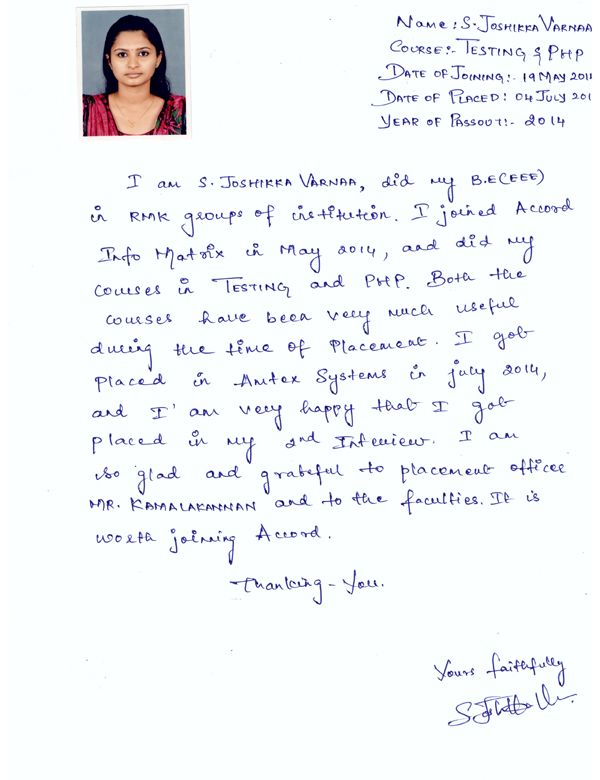 Name: S. JOSHIKKA VARNAA
COURSE:- TESTING & PHP
DATE OF JOINING:- 19 MAY 201
DATE OF PLACED: 04 JULY 201
YEAR OF PASSOUT:- 2014
I am S. JOSHIKKA VARNAA, did my B.E(EEE)
in RMK groups of institution. I joined Accord
Info Matrix in May 2014, and did my
courses in TESTING and PHP. Both the
courses have been very much useful
during the time of Placement. I got
placed in Amtex Systems in july 2014,
and I'am very happy that I got
placed in my 2nd Interview. I am
so glad and grateful to placement officer
MR. KAMALAKANNAN and to the faculties. It is
worth joining Accord.
Thanking - You.
Yours faithfully